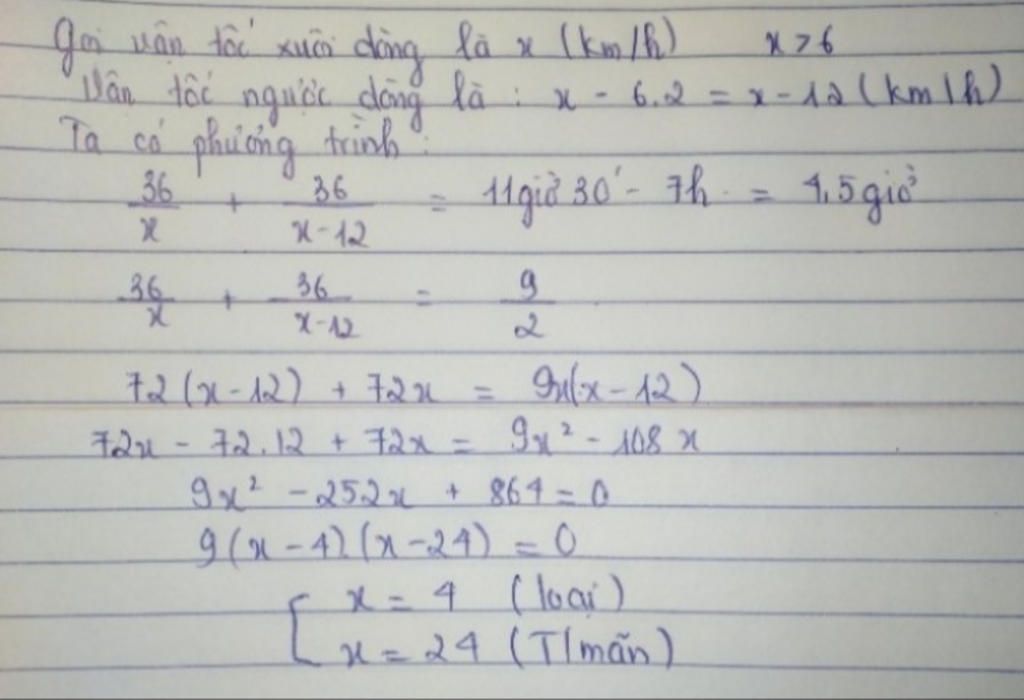 Gọi vận tốc xuôi dòng là x (km/h) x > 6
Vận tốc ngược dòng là : x - 6.2 = x - 12 (km/h)
Ta có phương trình :
36/x + 36/(x-12) = 11giờ 30' - 7h = 4,5 giờ
36/x + 36/(x-12) = 9/2
72(x-12) + 72x = 9x(x-12)
72x - 72.12 + 72x = 9x² - 108x
9x² - 252x + 864 = 0
9(x-4).(x-24) = 0
[ x = 4 (loại)
x = 24 (T/mãn)